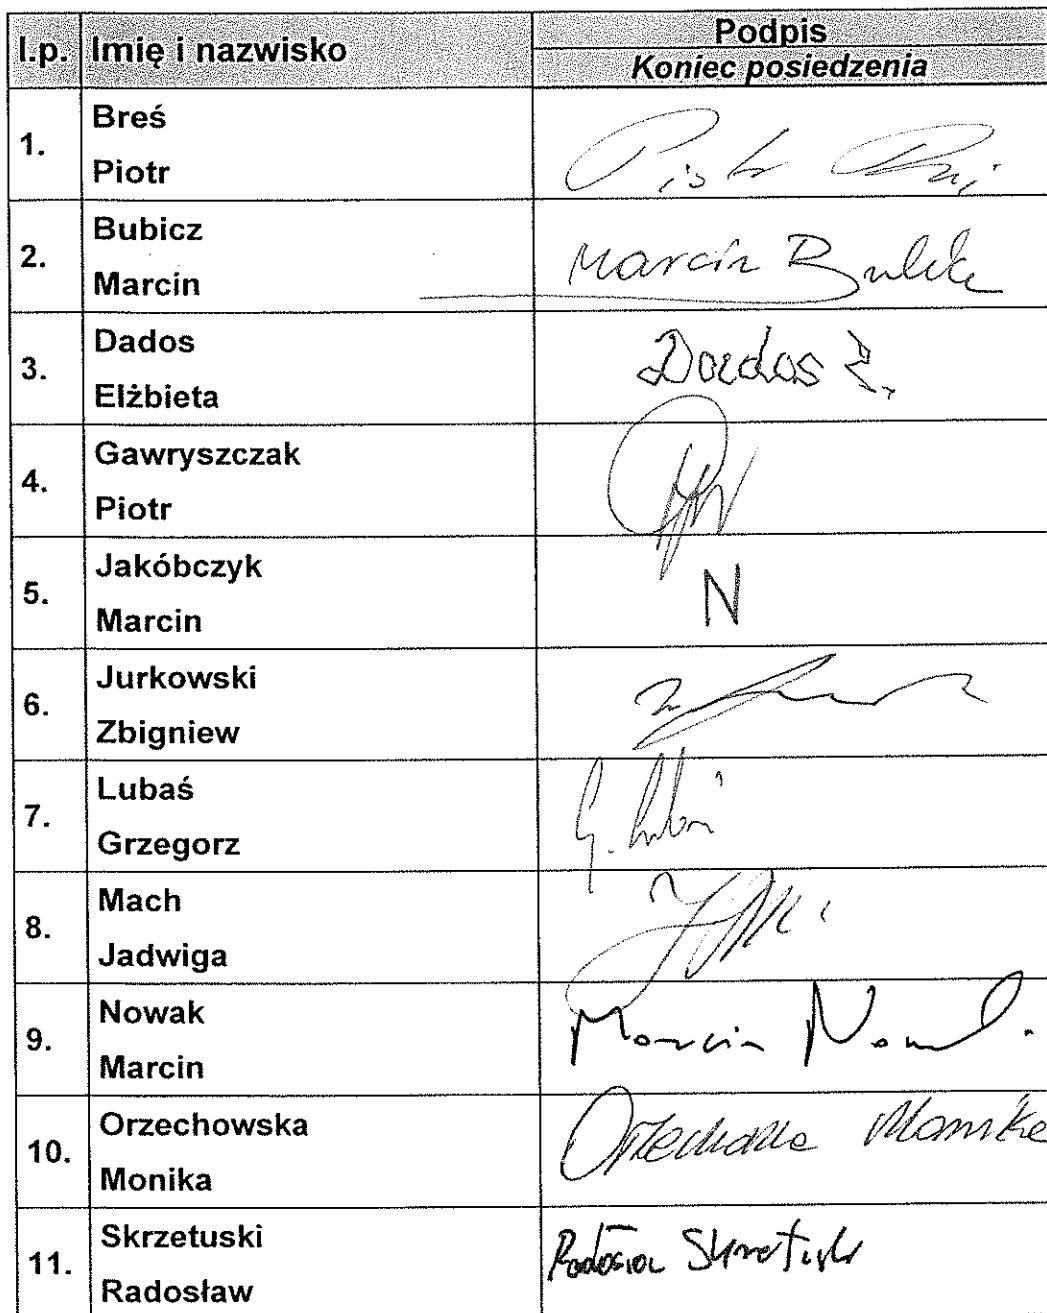 l.p. Imię i nazwisko Podpis
Koniec posiedzenia
1. Breś
Piotr
Piotr
2. Bubicz
Marcin
Marcin
3. Dados
Elżbieta
Dados E.
4. Gawryszczak
Piotr
5. Jakóbczyk
Marcin
N
6. Jurkowski
Zbigniew
7. Lubaś
Grzegorz
G. Lubaś
8. Mach
Jadwiga
9. Nowak
Marcin
Marcin Nowak
10. Orzechowska
Monika
Orzechowska Monika
11. Skrzetuski
Radosław
Radosław Skrzetuski